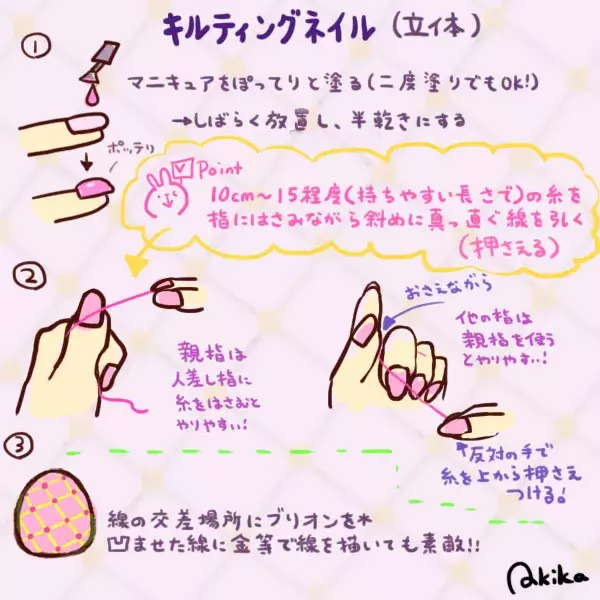 キルティングネイル（立体）
①
マニキュアをぽってりと塗る（二度塗りでもOK!）
→しばらく放置し、半乾きにする
ポッテリ
Point
10cm～15程度（持ちやすい長さで）の糸を
指にはさみながら斜めに真っ直ぐ線を引く
（押さえる）
②
親指は
人差し指に
糸をはさむと
やりやすい！
おさえながら
他の指は
親指を使う
とやりやすい！
↑反対の手で
糸を上から押さえ
つける！
③
線の交差場所にブリオンを*
凹ませた線に金等で線を描いても素敵!!
Akika